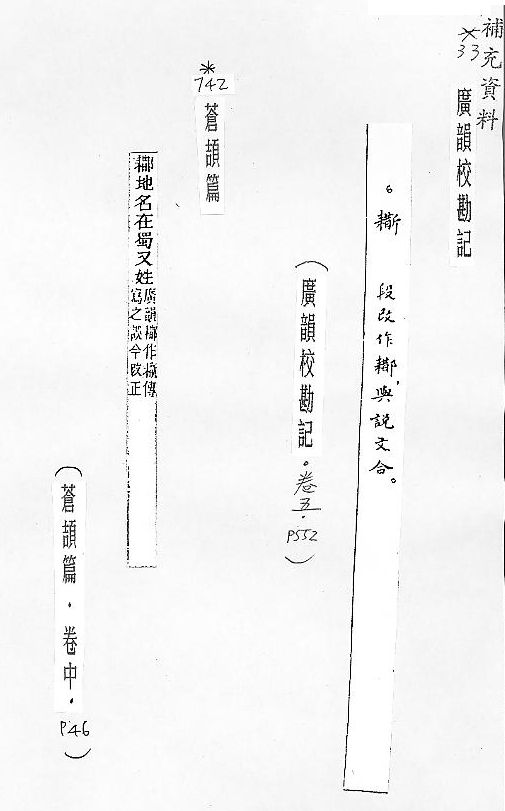 補充資料
*33
廣韻校勘記
6
段改作
,與説文合。
(廣韻校勘記。卷五.P552)
*742
蒼頡篇
地名在蜀又姓
廣韻
作
傳
寫之誤今改正
(蒼頡篇.卷中.P46)